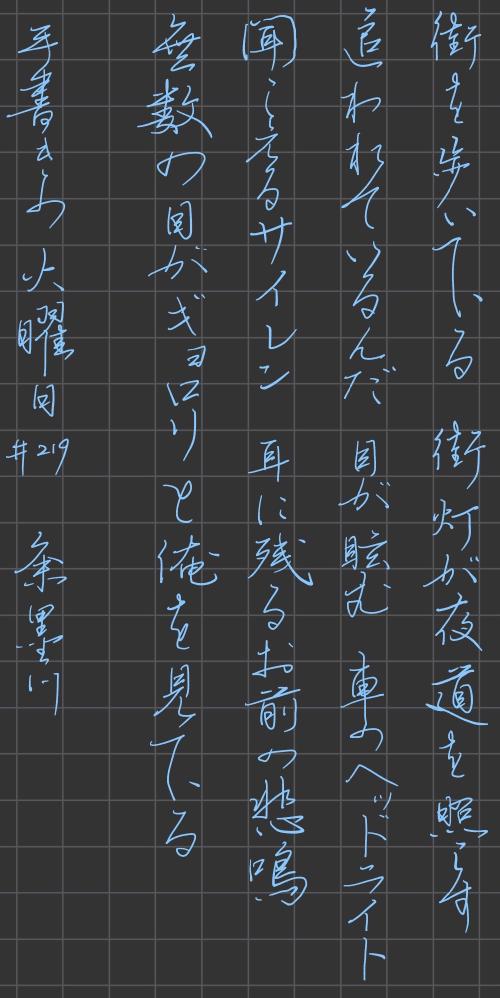 街を歩いている 街灯が夜道を照らす
追われているんだ 目が眩む 車のヘッドライト
聞こえるサイレン 耳に残るお前の悲鳴
無数の目がギョロリと俺を見ている
手書きの火曜日#219 条墨川